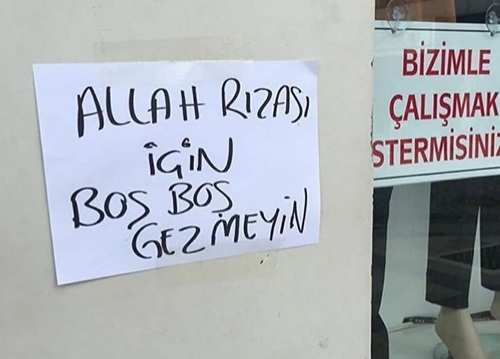 ALLAH RIZASI
İÇİN
BOŞ BOŞ
GEZMEYİN
BİZİMLE
ÇALIŞMAK
STERMİSİNİZ